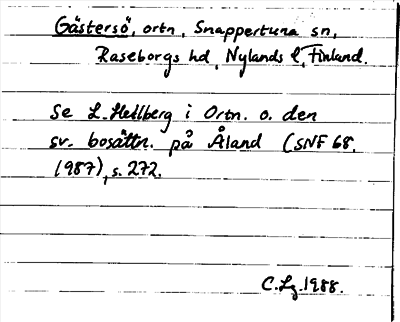 Gästersö, ortn, Snappertuna sn,
Raseborgs hd, Nylands l, Finland.
Se L. Hellberg i Ortn. o. den
sv. bosättn. på Åland (SNF 68,
1987), s. 272.
C. Lg. 1988.